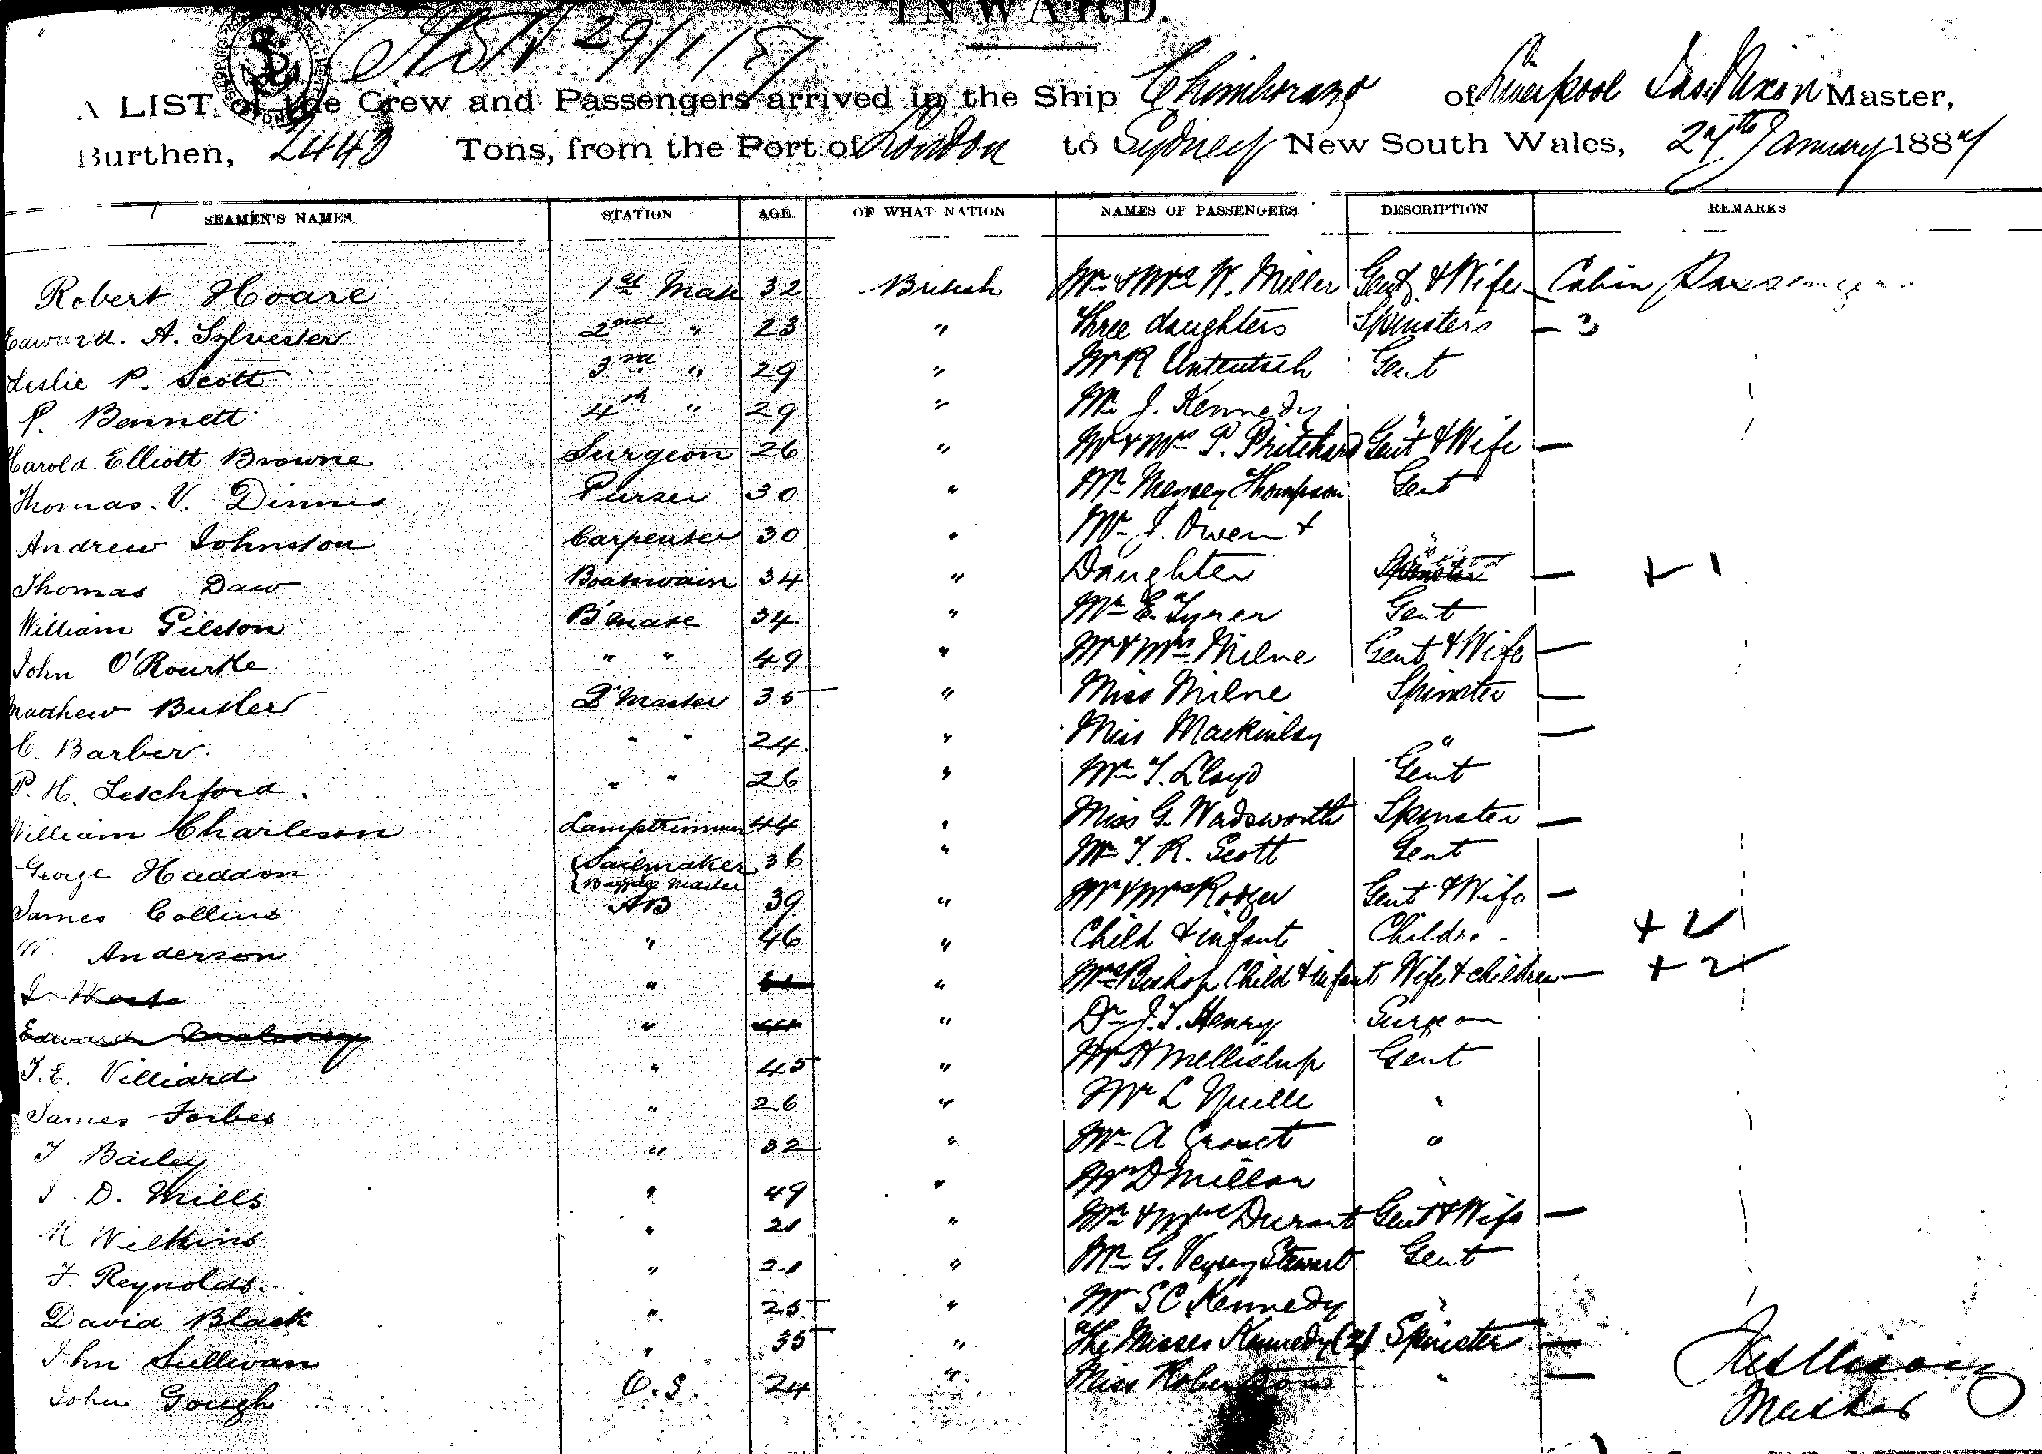 INWARD.
29/1/87
A LIST of the Crew and Passengers arrived in the Ship Chimborazo of Liverpool Jas. Nixon Master,
Burthen, 2443 Tons, from the Port of London to Sydney New South Wales, 27th January 1887
SEAMEN'S NAMES STATION AGE OF WHAT NATION NAMES OF PASSENGERS DESCRIPTION REMARKS
Robert Hoare 1st Mate 32 British Mr & Mrs W. Miller Gent & Wife Cabin Passengers
Edward. A. Sylvester 2nd " 23 " Three daughters Spinsters — 3
Leslie P. Scott 3rd " 29 " Mr R Gent
P. Bennett 4th " 29 " Mr J. Kennedy "
Harold Elliott Browne Surgeon 26 " Mr & Mrs P. Pritchard Gent & Wife —
Thomas. V. Dinnis Purser 30 " Mr Meysey Thompson Gent
Andrew Johnston Carpenter 30 " Mr J. Owen & "
Thomas Daw Boatswain 34 " Daughter Spinster — + 1
William Gilston B'mate 34 " Mr E. Tyrer Gent
John O'Rourke " " 49 " Mr & Mrs Milne Gent & Wife —
Matthew Butler Q' Master 35 " Miss Milne Spinster —
C. Barber " " 24 " Miss Mackinlay " —
P. H. Letchford " " 26 " Mr T. Lloyd Gent
William Charleson Lamptrimmer 44 " Miss G. Wadsworth Spinster —
George Haddon Sailmaker Baggage Master 36 " Mr T. R. Scott Gent
James Collins AB 39 " Mr & Mrs Rodger Gent & Wife —
W. Anderson " 46 " Child & infant Children + 2
" " Mrs Bishop Child & infant Wife & children — + 2
Edward " " Dr J. T. Henry Surgeon
T. E. Villiard " 45 " Mr H Gent
James Forbes " 26 " Mr L "
T Bailey " 32 " Mr A "
D. Mills " 49 " Mr D Millar "
Wilkins " 21 " Mr & Mrs Durant Gent & Wife —
F Reynolds " 21 " Mr G. Veysey Stewart Gent
David Black " 25 " Mr S C Kennedy "
John Sullivan " 35 " The Misses Kennedy (2) Spinster —
John Gough O. S. 24 " Miss Robertson " —
Jas Nixon
Master